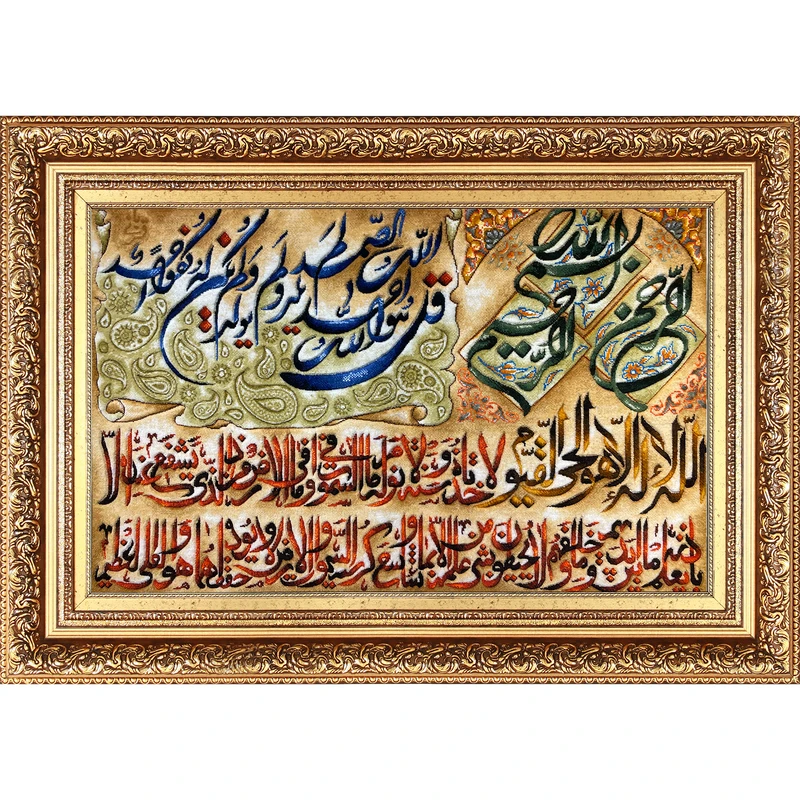 بسم الله الرحمن الرحیم
قل هو الله احد الله الصمد لم یلد و لم یولد و لم یکن له کفوا احد
الله لا إله إلا هو الحی القیوم لا تأخذه سنة و لا نوم له ما فی السموات و ما فی الارض من ذا الذی یشفع عنده إلا
بإذنه یعلم ما بین أیدیهم و ما خلفهم و لا یحیطون بشیء من علمه إلا بما شاء وسع کرسیه السموات و الارض و لا یؤده حفظهما و هو العلی العظیم